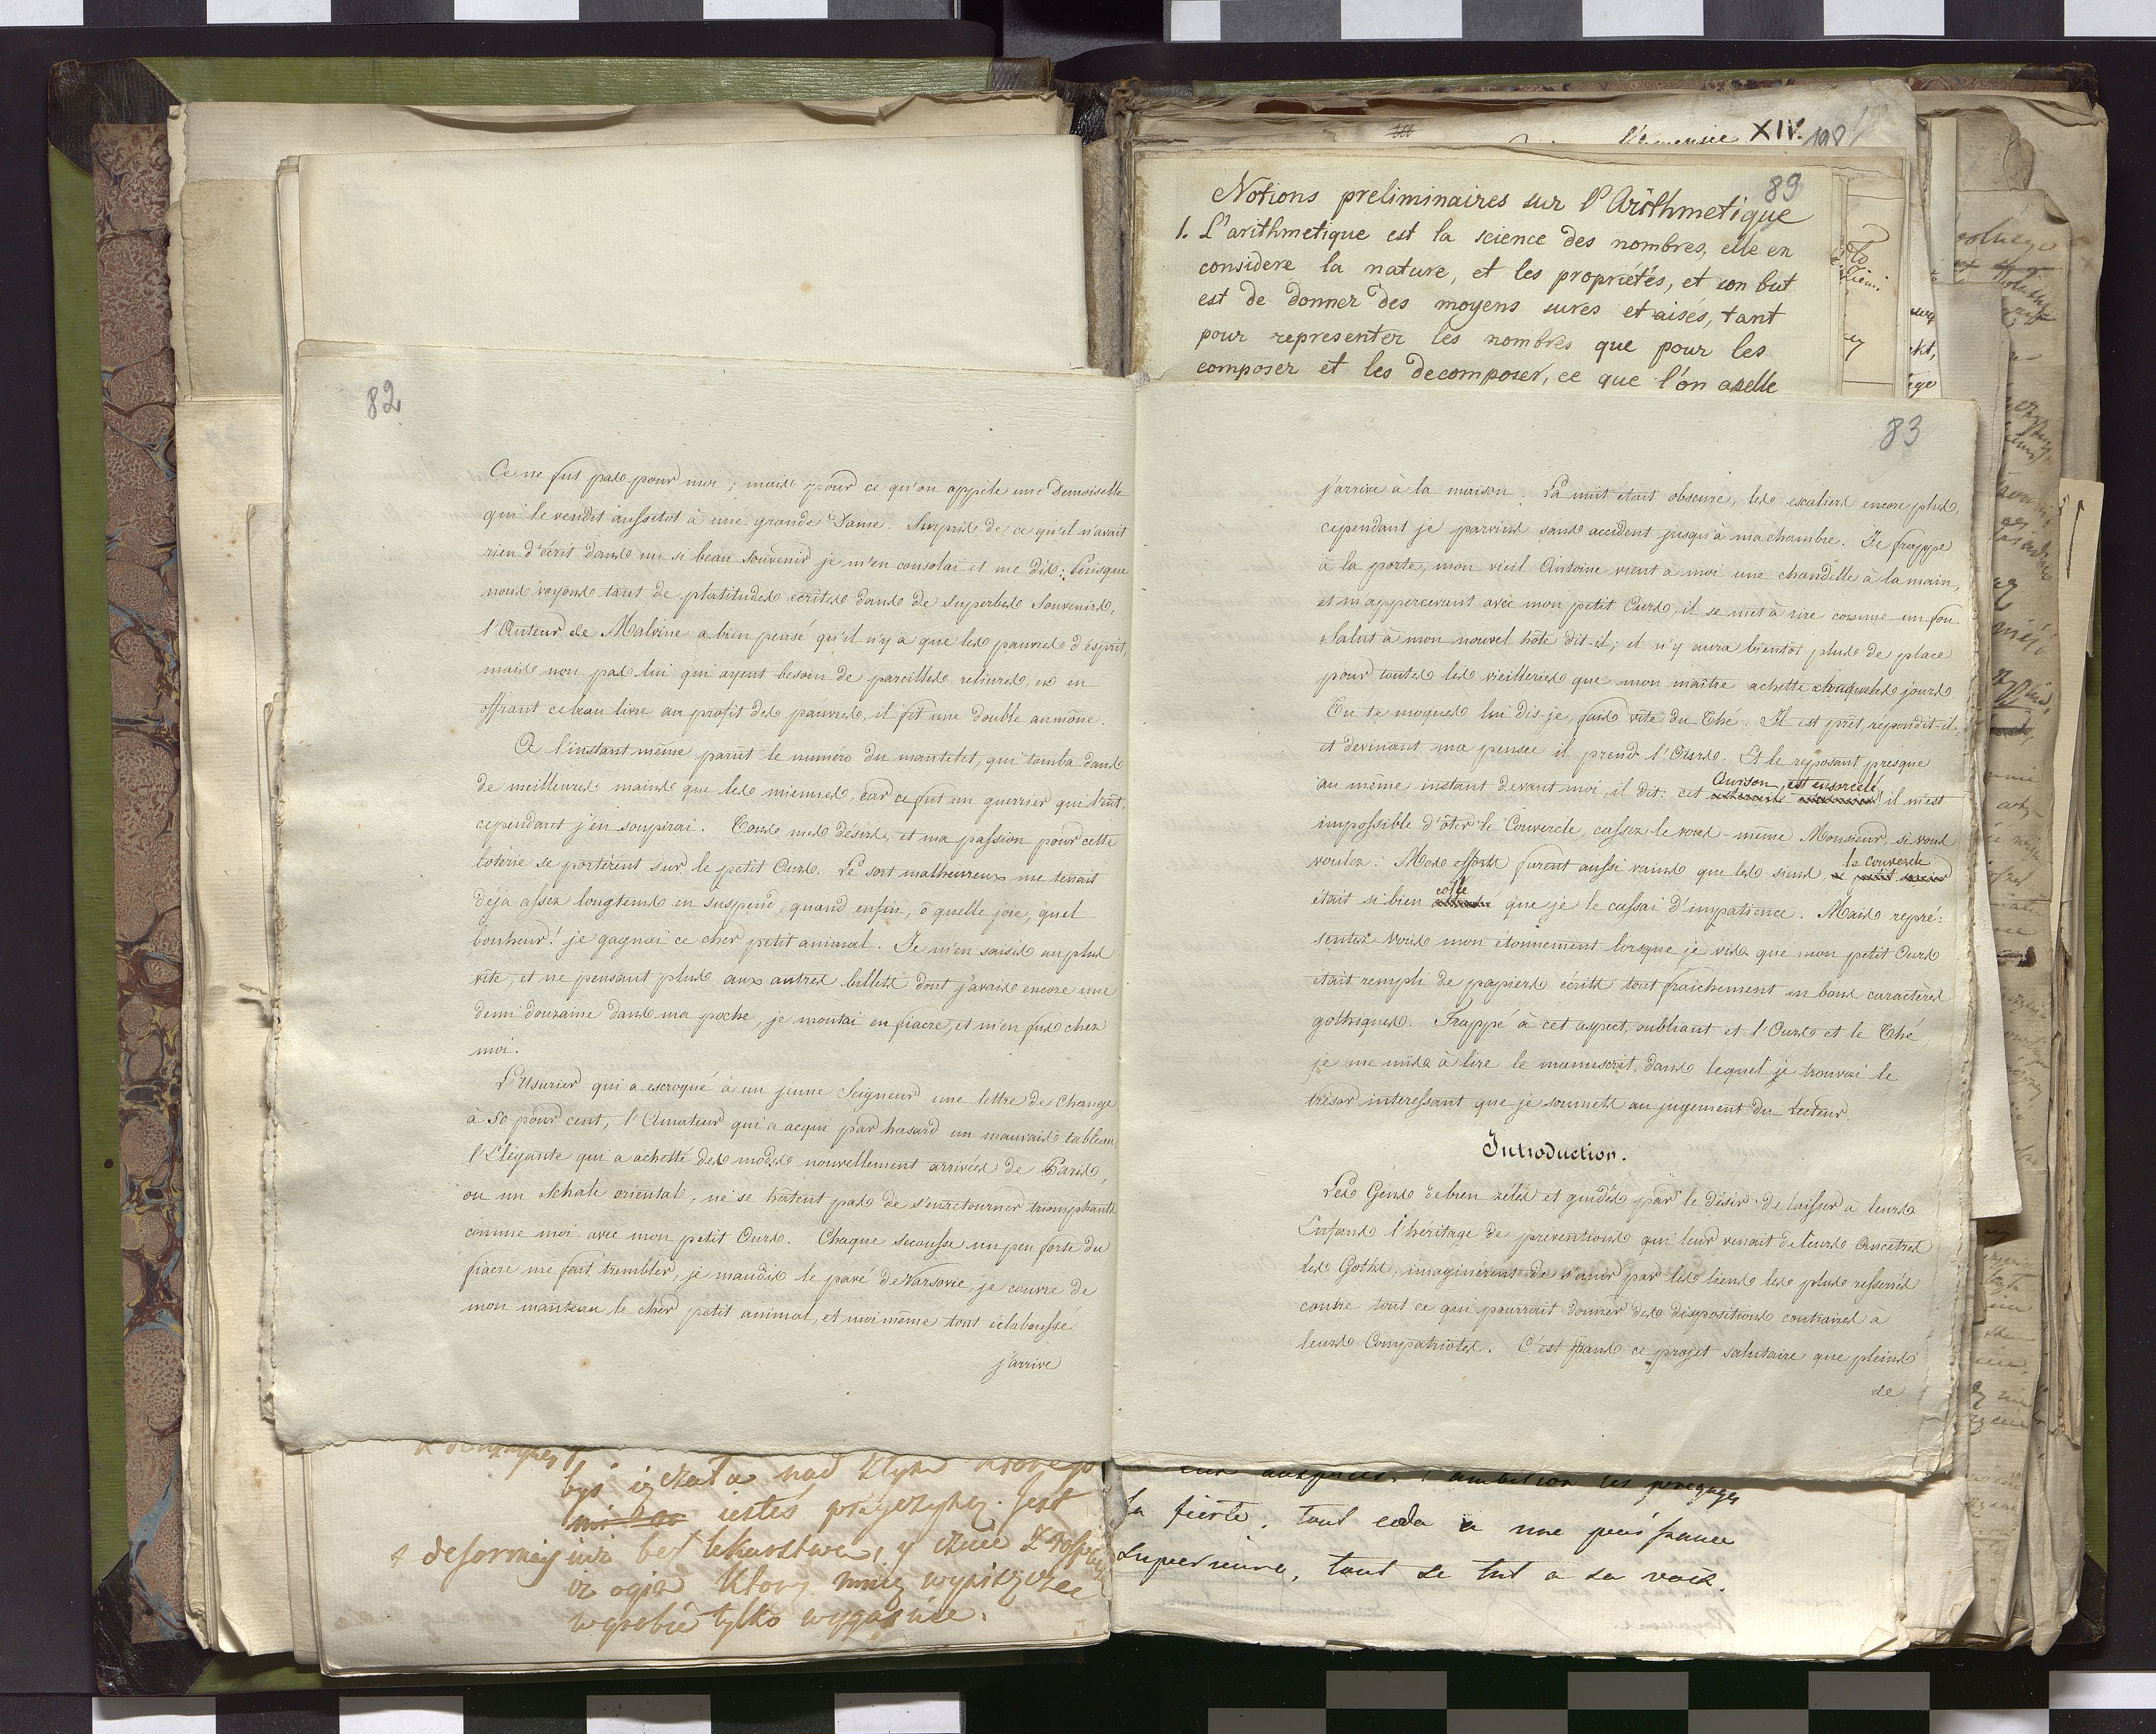 82
Ce ne fut pas pour moi ; mais pour ce qu'on appèle une Demoiselle
qui le vendit aussitot à une grande Dame. Surpris de ce qu'il n'avait
rien d'écrit dans un si beau Souvenir je m'en consolai et me dis: Puisque
nous voyons tant de platitudes écrites dans de superbes Souvenirs,
l'Auteur de Malvine a bien pensé qu'il n'y a que les pauvres d'ésprit,
mais non pas lui qui ayent besoin de pareilles reliures, et en
offrant ce beau livre au profit des pauvres, il fit une double aumône.
A l'instant même parût le numéro du mantelet, qui tomba dans
de meilleures mains que les miennes, car ce fut un guerrier qui l'eût,
cependant j'en soupirai. Tous mes désirs, et ma passion pour cette
loterie se portèrent sur le petit Ours. Le sort malheureux me tenait
déja assez longtems en suspens, quand enfin, ô quelle joie, quel
bonheur! je gagnai ce cher petit animal. Je m'en saisis au plus
vite, et ne pensant plus aux autres billets dont j'avais encore une
demi douzaine dans ma poche, je montai en fiacre, et m'en fus chez
moi.
L'Usurier qui a escroqué à un jeune Seigneur une lettre de Change
à 50 pour cent, l'Amateur qui a acqui par hasard un mauvais tableau
l'Elégante qui a achetté des modes nouvellement arrivées de Paris,
ou un Schale oriental, ne se hâtent pas de s'en retourner triomphants
comme moi avec mon petit Ours. Chaque secousse un peu forte du
fiacre me fait trembler, je maudis le pavé de Varsovie, je couvre de
mon manteau le cher petit animal, et moi même tout éclabousse
j'arrive
być iey
iestes przyczyną. Jest
bez lekarstwa, y
iz ogien Ktory mnie
tylko
XIV.
198
89
Notions preliminaires sur l'Arithmetique
1. L'arithmetique est la science des nombres, elle en
considere la nature, et les propriétés, et son but
est de donner des moyens sures et aisés, tant
pour representer les nombres que pour les
composer et les decomposer, ce que l'on apelle
83
j'arrive à la maison. La nuit était obscure, les escaliers encore plus,
cependant je parvins sans accident jusqu'à ma chambre. Je frappe
à la porte, mon vieil Antoine vient à moi une chandelle à la main,
et m'appercevant avec mon petit Ours, il se met à rire comme un fou
Salut à mon nouvel hôte dit-il; il n'y aura bientôt plus de place
pour toutes les vieilleries que mon maitre achette tous les jours
Tu te moques lui dis-je, fais vite du Thé. Il est prêt, répondit-il,
et devinant ma pensée il prend l'Ours. Et le reposant presque
au même instant devant moi, il dit: cet Ourson est ensorcelé, il m'est
impossible d'ôter le Couvercle, cassez le vous-même Monsieur, si vous
voulez. Mes efforts furent aussi vains que les siens, le couvercle
était si bien collé que je le cassai d'impatience. Mais repré:
sentez vous mon étonnement lorsque je vis que mon petit Ours
était rempli de papiers écrits tout fraichement en bons caractères
gothiques. Frappé à cet aspect, oubliant et l'Ours et le Thé
je me mis à lire le manuscrit, dans lequel je trouvai le
trésor interessant que je soumets au jugement du Lecteur.
Introduction.
Les Gens de bien zélés et guidés par le désir de laisser à leurs
Enfans l'héritage de preventions qui leur venait de leurs Ancêtres
les Goths, imaginèrent de s'unir par les liens les plus resserrés
contre tout ce qui pourrait donner des dispositions contraires à
leurs Compatriotes. C'est dans ce projet salutaire que pleins
de
la fierte, tout ceda a une puissance
superieure, tout se tut a sa voix.